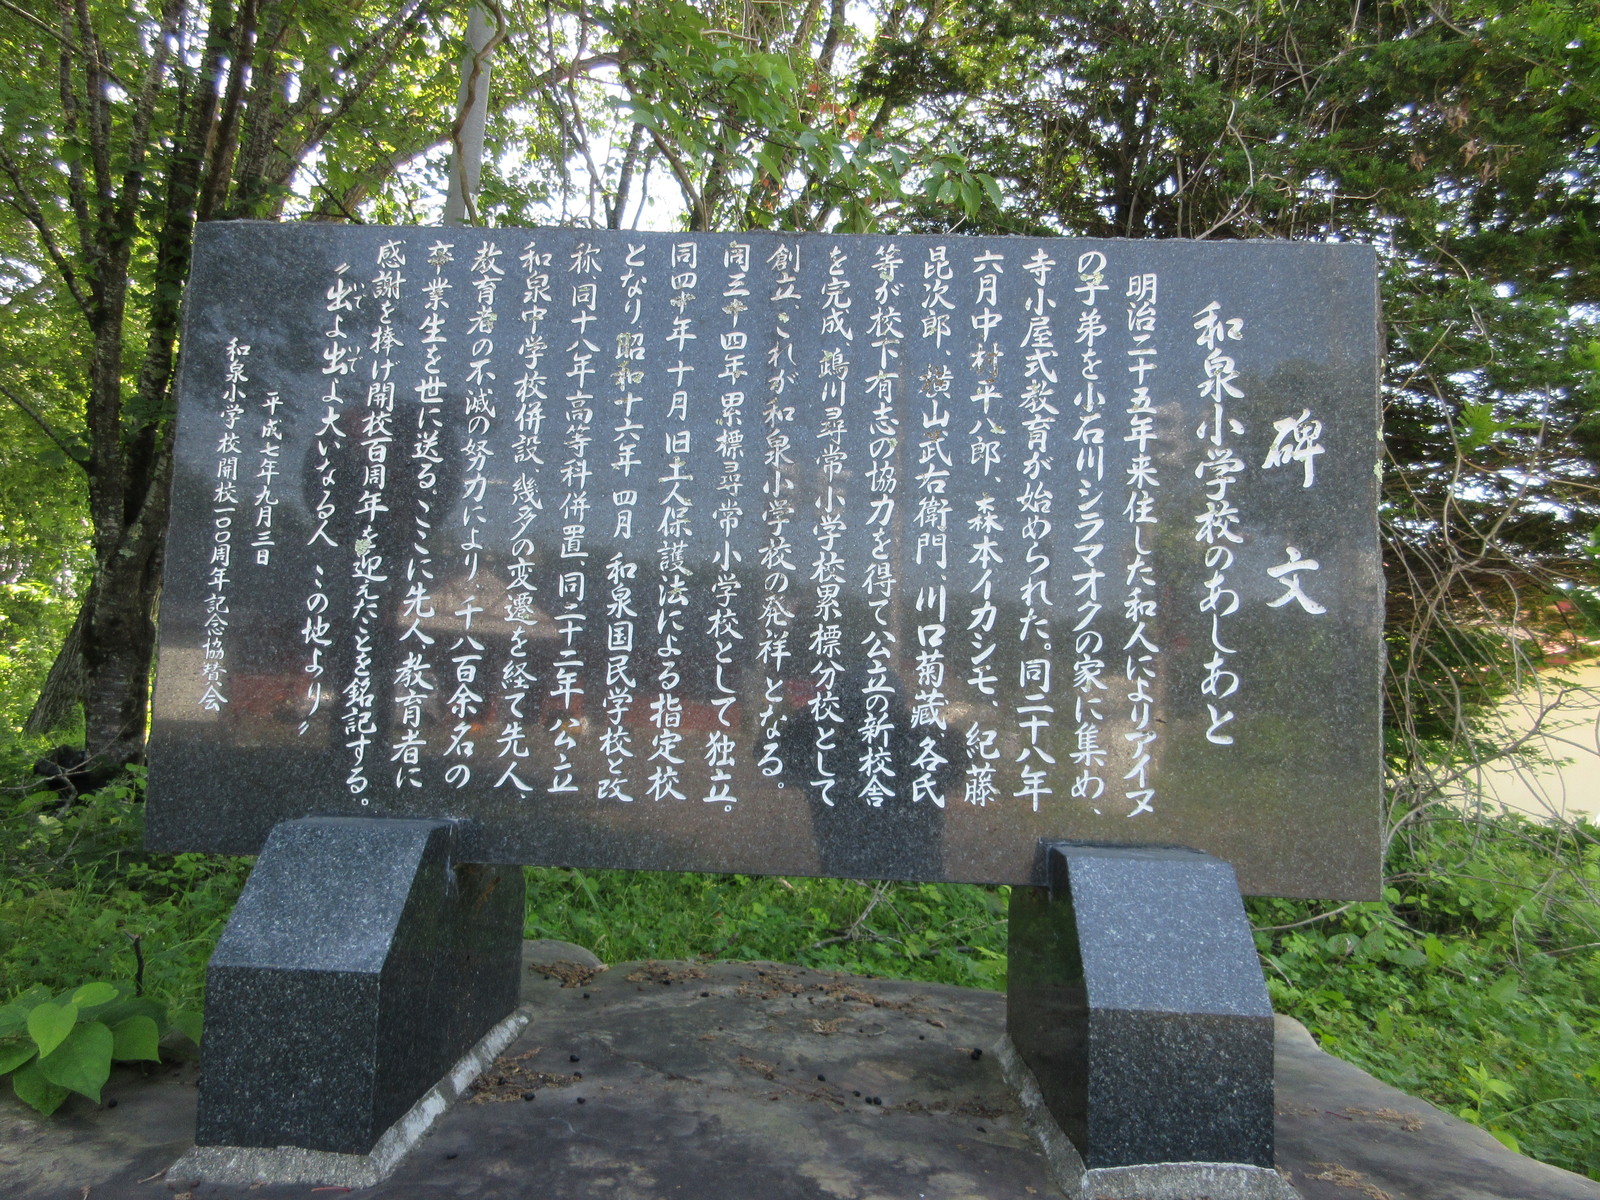 碑文
和泉小学校のあしあと
明治二十五年来住した和人によりアイヌ
の子弟を小石川シラマオクの家に集め、
寺小屋式教育が始められた。同二十八年
六月中村平八郎、森本イカシモ、紀藤
昆次郎、横山武右衛門、川口菊蔵各氏
等が校下有志の協力を得て公立の新校舎
を完成 鵡川尋常小学校累標分校として
創立、これが和泉小学校の発祥となる。
同三十四年累標尋常小学校として独立。
同四十年十月旧土人保護法による指定校
となり、昭和十六年四月 和泉国民学校と改
称、同十八年高等科併置、同二十二年公立
和泉中学校併設 幾多の変遷を経て先人、
教育者の不滅の努力により、千八百余名の
卒業生を世に送る。ここに先人、教育者に
感謝を捧げ開校百周年を迎えたことを銘記する。
〝出いでよ出いでよ大いなる人 この地より〟
平成七年九月三日
和泉小学校開校一〇〇周年記念協賛会